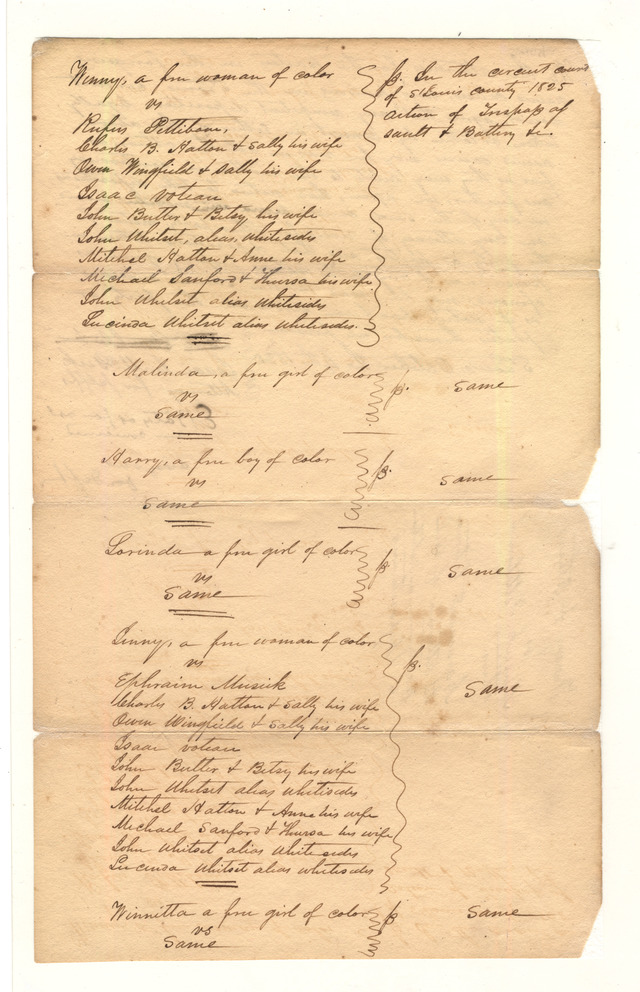 Winny, a free woman of color
vs
Rufus Pettibone,
Charles B. Hatton & Sally his wife
Owen Wingfield & Sally his wife
Isaac Voteau
John Butler & Betsy his wife
John Whitset, alias, Whitesides
Mitchel Hatton & Anne his wife
Michael Sanford & Thursa his wife
John Whitset alias Whitesides
Lucinda Whitset alias Whitesides.
In the circuit court
of St Louis county 1825
action of Trespass as
sault & Battery &c.
Malinda, a free girl of color
vs
Same
Same
Harry, a free boy of color
vs
Same
Same
Lorinda a free girl of color
vs
Same
Same
Jenny, a free woman of color
vs
Ephraim Musick
Charles B. Hatton & Sally his wife
Owen Wingfield & Sally his wife
Isaac Voteau
John Butler & Betsy his wife
John Whitset alias Whitesides
Mitchel Hatton & Anne his wife
Michael Sanford & Thursa his wife
John Whitset alias Whitesides
Lucinda Whitset alias Whitesides
Same
Winnitta a free girl of color
vs
Same
Same